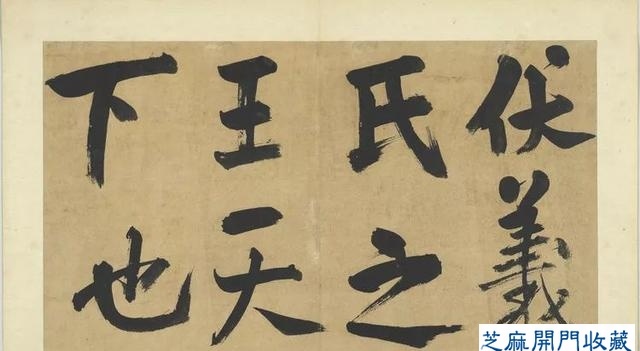 伏羲
氏之
王天
下也
芝麻開門收藏